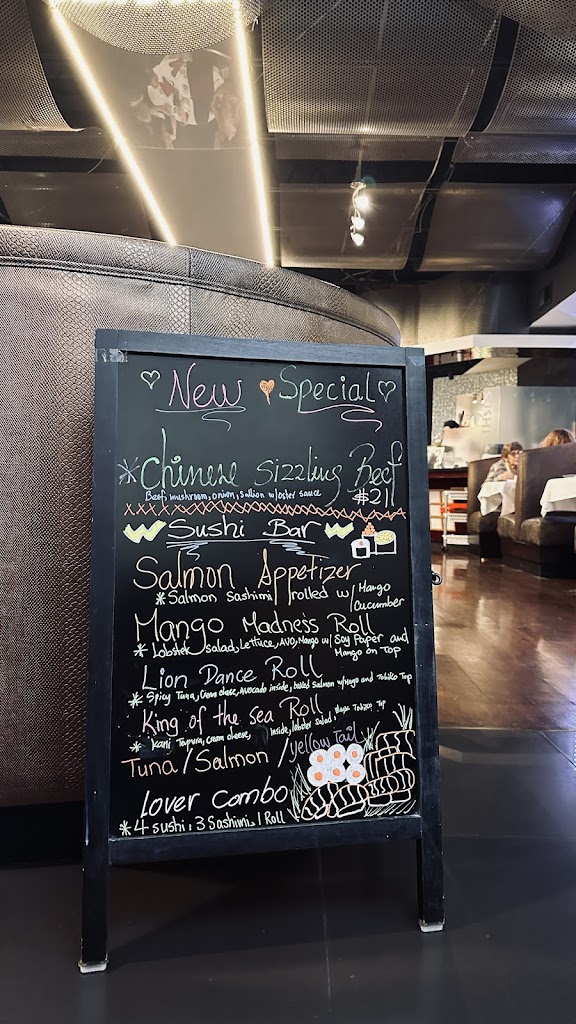 New Special
Chinese Sizzling Beef
Beef, mushroom, onion, Sallion w/oster sauce $21
Sushi Bar
Salmon Appetizer
* Salmon Sashimi rolled w/ Mango
Cucumber
Mango Madness Roll
* Lobster Salad, Lettuce, AVO, Mango w/ Soy Paper and
Mango on Top
Lion Dance Roll
* Spicy Tuna, Cream cheese, Avocado inside, baked Salmon w/mayo and Tobiko Top
King of the sea Roll
* Kani Tempura, cream cheese, inside, lobster Salad, Mayo Tobiko Top
Tuna/Salmon/yellow Tail
Lover Combo
* 4 Sushi, 3 Sashimi, 1 Roll